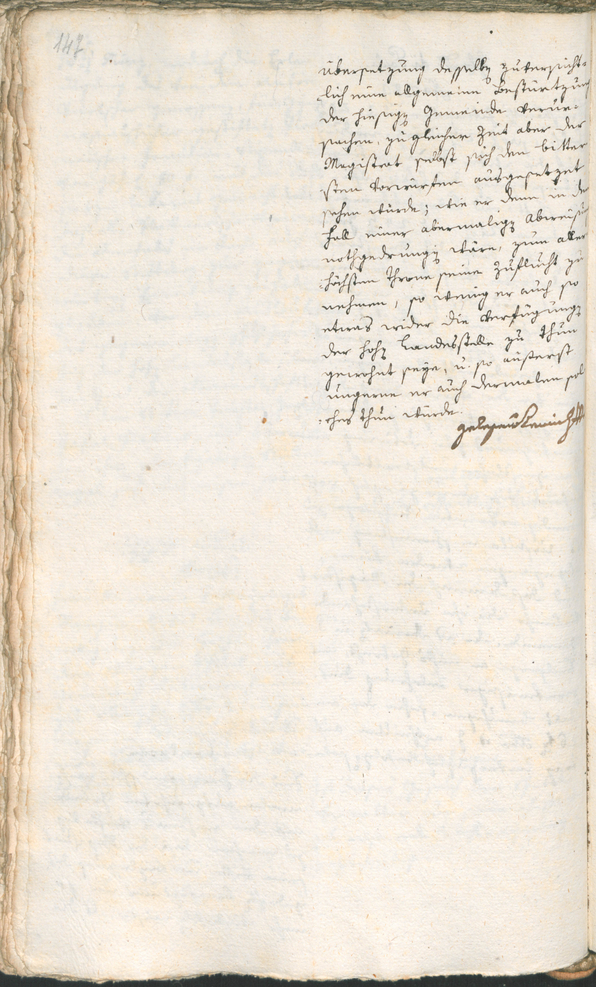 147
übersetzung desselbẽ zuversicht-
lich eine allgemeine Bestürtzung
der hiesigẽ Gemeinde verur-
sachen, zu gleicher Zeit aber der
Magistrat selbst sich den bitter
sten Vorwürfen ausgesetzet
sehen würde; wie er denn in de
fall einer abermaligẽ Abweisu
nothgedrungẽ wäre, zum aller
höchsten Throne seine Zuflucht zu
nehmen, so wenig er auch so
etwas wider die Verfügungẽ
der hohẽ Landesstelle zu thun
gewohnt seye, u. so äußerst
ungerne er auch dermalen sol
ches thun würde.